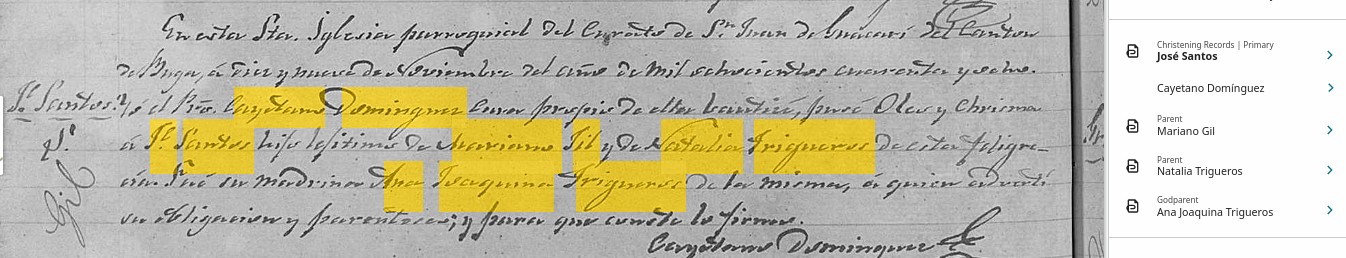 En esta Sta. Iglesia parroquial del Curato de Sn. Juan de Guacarí del Canton
de Buga, á diez y nueve de Noviembre del año de mil ochocientos cuarenta y ocho.
Je. Santos.
Yo el Pro. Cayetano Dominguez Cura propio de ella bauticé, puse Oleo y Chrisma
á Je. Santos hijo lejitimo de Mariano Jil y de Natalia Trigueros de esta feligre-
cia. Fué su madrina Ana Joaquina Trigueros de la misma, á quien advertí
su obligacion y parentesco; y para que conste lo firmo.
Cayetano Dominguez
Gil
Christening Records | Primary
José Santos
Cayetano Domínguez
Parent
Mariano Gil
Parent
Natalia Trigueros
Godparent
Ana Joaquina Trigueros